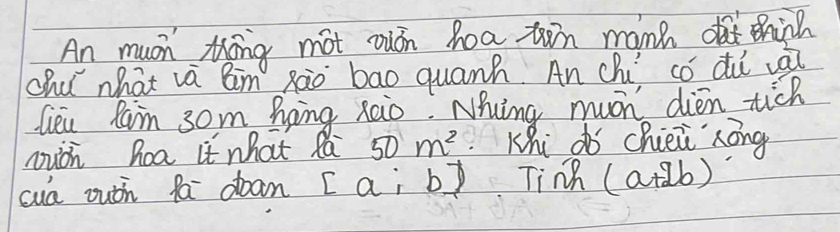 An muốn trồng một vườn hoa trên mảnh đất hình
chữ nhật và làm rào bao quanh. An chỉ có đủ vật
liệu làm 30m hàng rào. Nhưng muốn diện tích
vườn hoa ít nhất là 50 m². Khi đó chiều rộng
của vườn là đoạn [a; b]. Tính (a+2b)